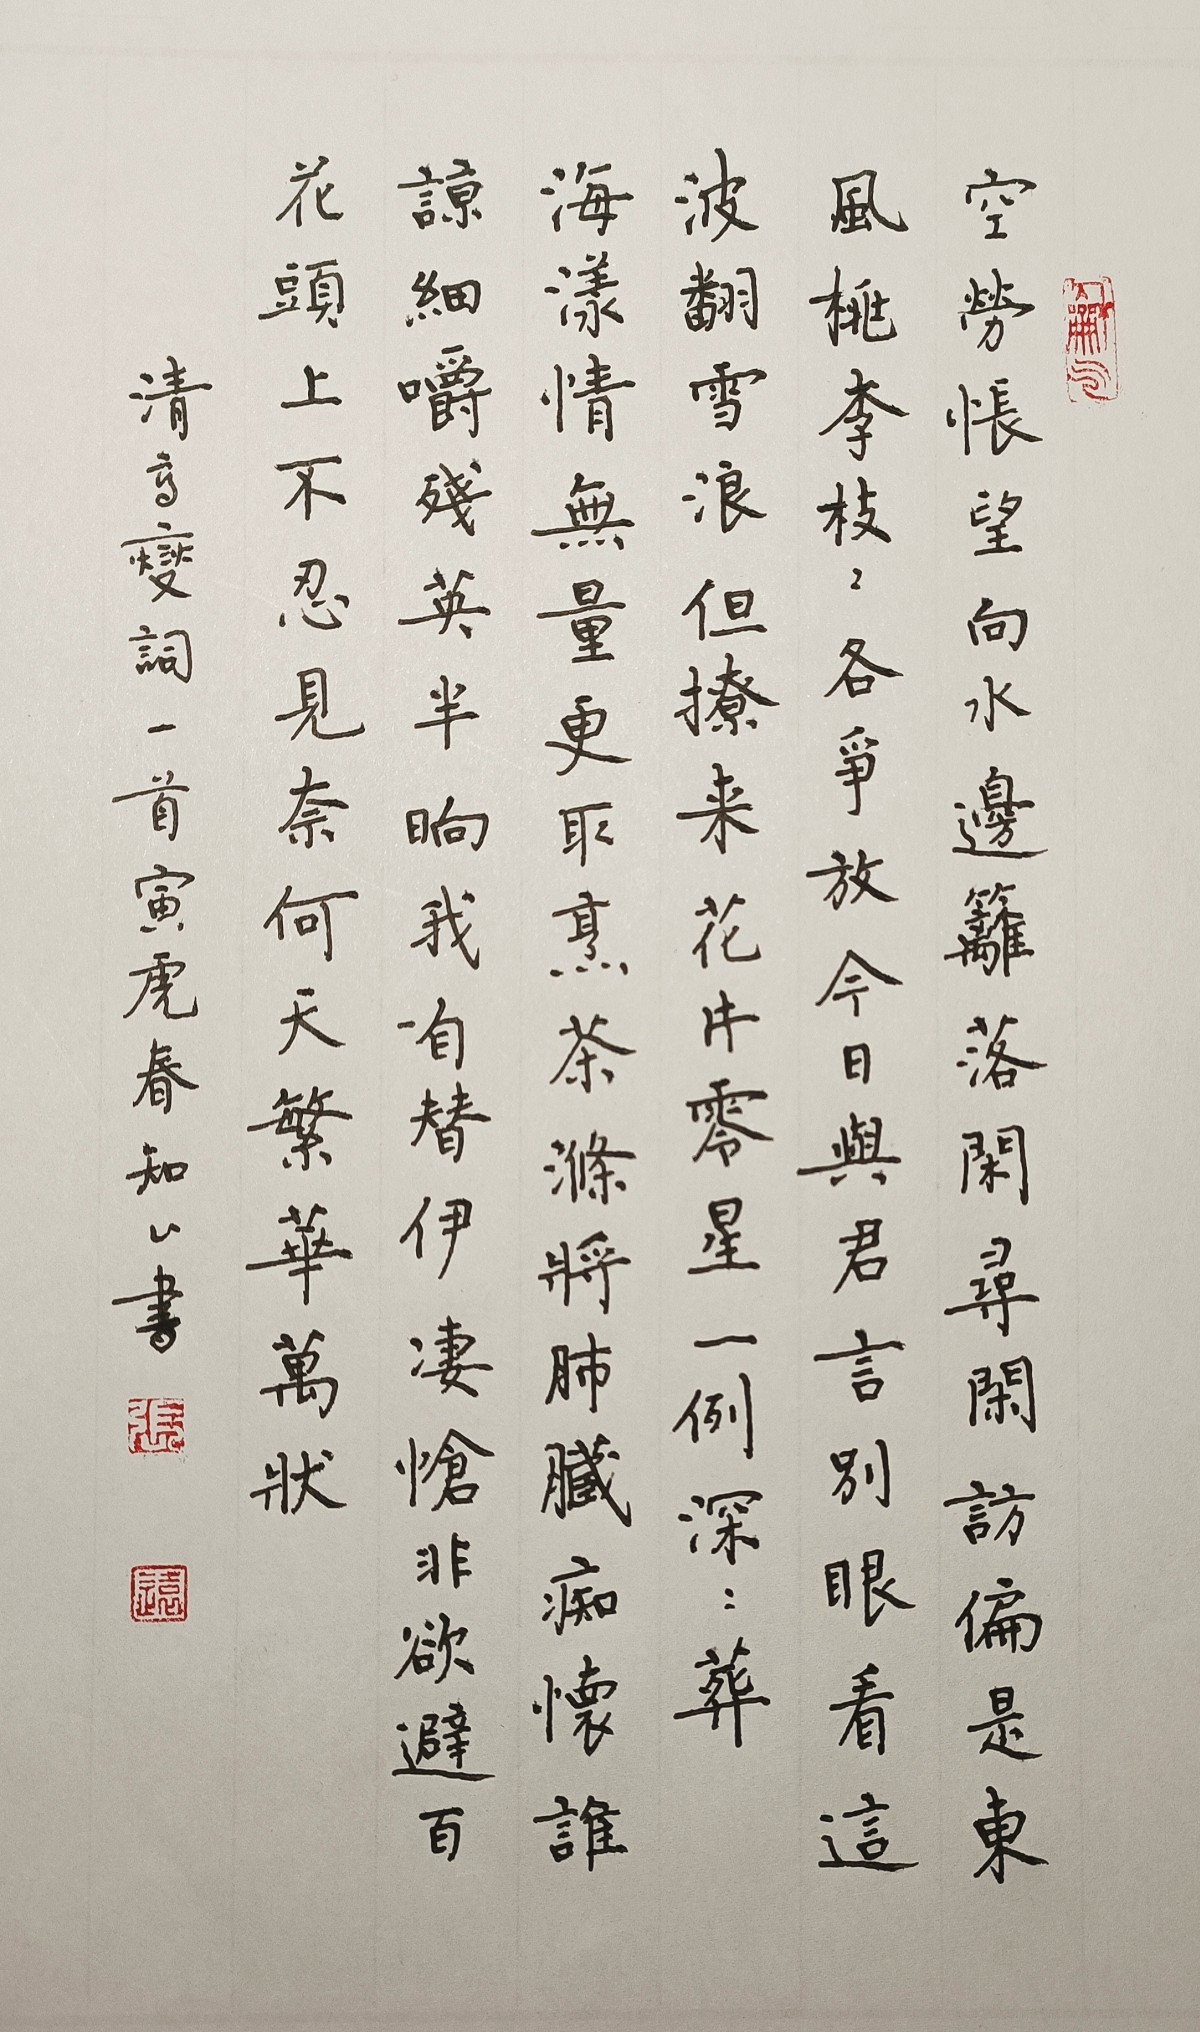 空勞悵望向水邊籬落閑尋閑訪偏是東
風桃李枝〻各爭放今日與君言別眼看這
波翻雪浪但撩来花片零星一例深〻葬
海漾情無量更取烹茶滌將肺臟痴懷誰
諒細嚼殘英半晌我有替伊凄愴非欲避百
花頭上不忍見奈何天繁華萬狀
清高變詞一首寅虎春知公書
張
遠